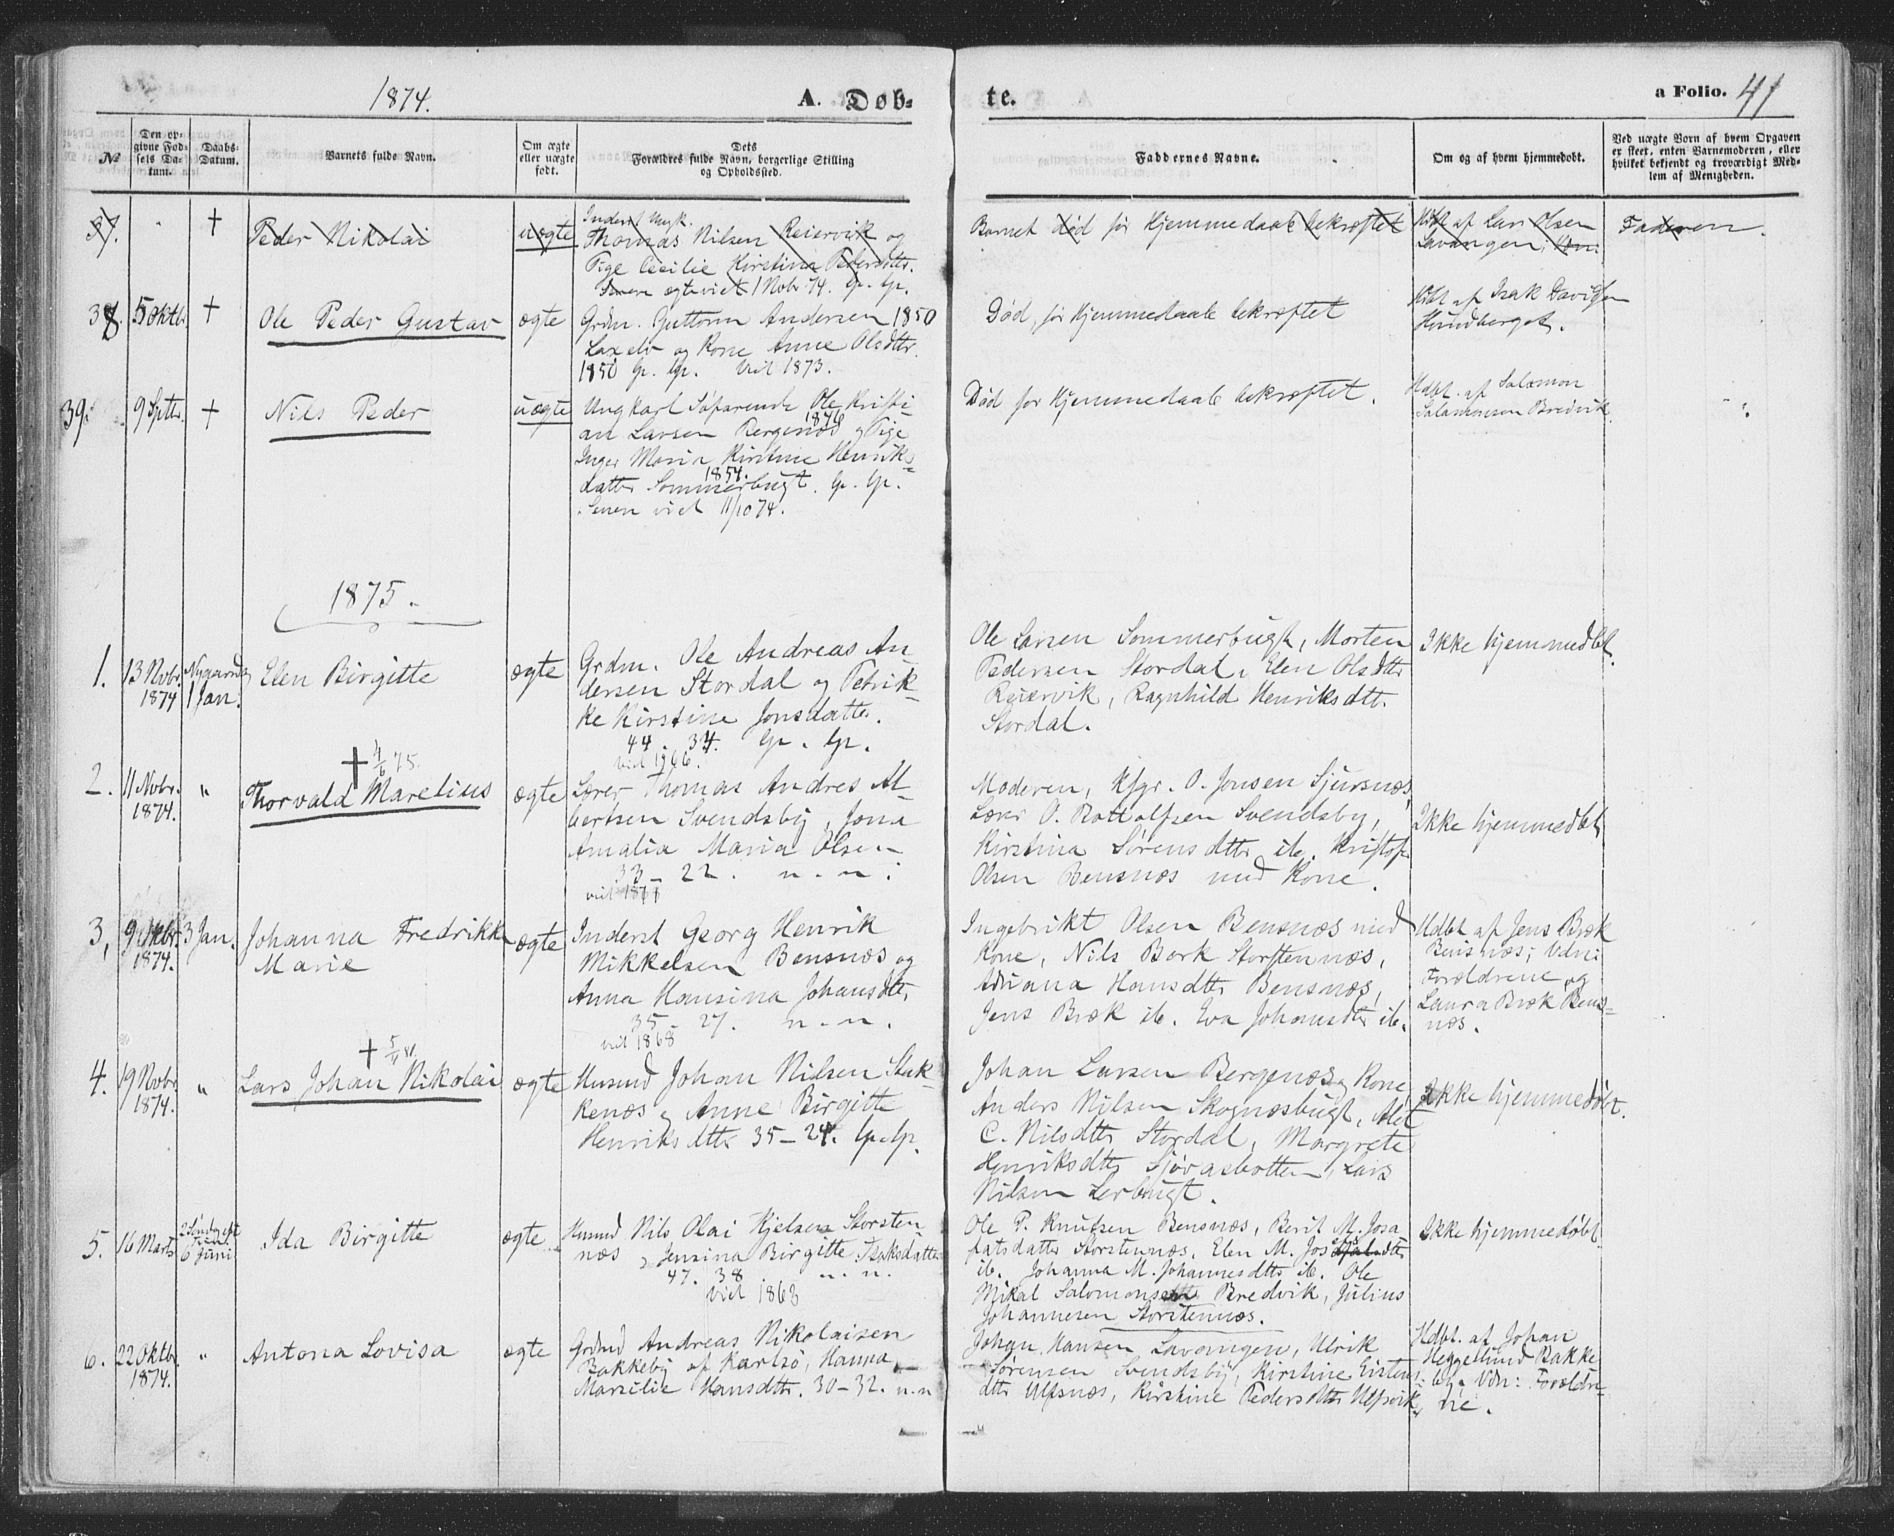 1874.
A. Døb-
te.
a Folio. 41
No
Den op-
givne Fød-
sels Da-
tum.
Daabs-
Datum.
Barnets fulde Navn.
Om ægte
eller uægte
født.
Dets
Forældres fulde Navn, borgerlige Stilling
og Opholdssted.
Faddernes Navne.
Om og af hvem hjemmedøbt.
Ved uægte Børn af hvem Opgaven
er skeet, enten Barnemoderen, eller
hvilket bekjendt og troværdigt Med-
lem af Menigheden.
37.
"
+
Peder Nikolai
uægte
Inderst Ungk.
Thomas Nilsen Reiervik og
Pige Cecilie Kirstina Pedersdtr.
Senere ægteviet 1 Nobr. 74. lp. lp.
Barnet død før Hjemmedaab bekræftet
Hdbt. af Lars Olsen
Lavangen;
Faderen.
38.
5 Oktb.
+
Ole Peder Gustav
ægte
Grdm. Guttorm Andersen 1850
Laxelv og Kone Anne Olsdtr.
1850 lp. lp. viet 1873.
Død, før Hjemmedaab bekræftet
Hdbt. af Isak Davidsen
Hundberget.
39.
9 Sptb.
+
Nils Peder
uægte
Ungkarl Søfarende Ole Kristi
an Larsen Bergenæs og Pige
1846
Inger Maria Kirstine Henriks
datter Sommerbugt. lp. lp.
1854.
Senere viet 11/10 74.
Død før Hjemmedaab bekræftet.
Hdbt. af Salamon
Salamonsen Bredvik
1875.
1.
13 Nvbr.
1874
Nygaard
1 Jan.
Elen Birgitte
ægte
Grdm. Ole Andreas An
dersen Stordal og Petrik-
ke Kirstine Jonsdatter.
44 - 34. lp. lp.
viet 1866.
Ole Larsen Sommerbugt, Morten
Pedersen Stordal, Elen Olsdtr
Reiervik, Ragnhild Henriksdtr.
Stordal.
Ikke hjemmedbt.
2.
11 Nvbr.
1874.
"
+ 4/6 75.
Thorvald Marelius
ægte
Lærer Thomas Andres Al-
bertsen Svendsby, Jona
Amalia Maria Olsen
33 - 22. n - n.
Moderen, Kfgr. O. Jonsen Sjursnæs,
Lærer O. Svendsby,
Kirstina Sørensdtr ib. Kristof.
Olsen Bensnæs med Kone.
Ikke hjemmedbt
3,
9 Oktbr.
1874.
3 Jan.
Johanna Fredrikke
Marie
ægte
Inderst Georg Henrik
Mikkelsen Bensnæs og
Anna Hansina Johansdtr.
35 - 27. n - n.
viet 1868
Ingebrikt Olsen Bensnæs med
Kone, Nils Bork Storstennæs,
Adriana Hansdtr Bensnæs,
Jens Bræk ib. Eva Johansdtr ib.
Hdbt af Jens Bræk
Bensnæs; Vdn:
Forældrene og
Laura Bræk Bens-
næs.
4.
19 Nvbr
1874.
"
+
Lars Johan Nikolai
ægte
Husmd Johan Nilsen Stak-
kenæs, Anne Birgitte
Henriksdtr 35 - 24. lp. lp.
Johan Larsen Bergenæs og Kone,
Anders Nilsen Skognæsbugt, Alet
C. Nilsdtr Stordal, Margrete
Henriksdtr Sjøvasbotten, Lars
Nilsen Lerbugt.
Ikke hjemmedøbt.
5.
16 Marts
6 Juni
Ida Birgitte
ægte
Husmd Nils Olai Kjelsen Storsten
næs, Jensina Birgitte Isaksdatter
47. 38. n. n.
viet 1863
Ole P. Knutsen Bensnæs, Berit M. Josa
fatsdatter Storstennæs, Elen M.
ib. Johanna M. Johannesdtr ib. Ole
Mikal Salomonsen Bredvik, Julius
Johannesen Storstennæs.
Ikke hjemmedøbt.
6.
22 Oktbr.
1874.
"
Antona Lovisa
ægte
Grdmd Andreas Nikolaisen
Bakkeby af Karlsø, Hanna
Marselie Hansdtr. 30 - 32. n - n
Johan Hansen Lavangen, Ulrik
Sørensen Svendsby, Kirstine Eistens
dtr Ulfsnæs, Kirstine Pedersdtr Ulfsvik,
Hdbt. af Johan
Heggelund Bakke
by, Vdn: Forældre-
ne.